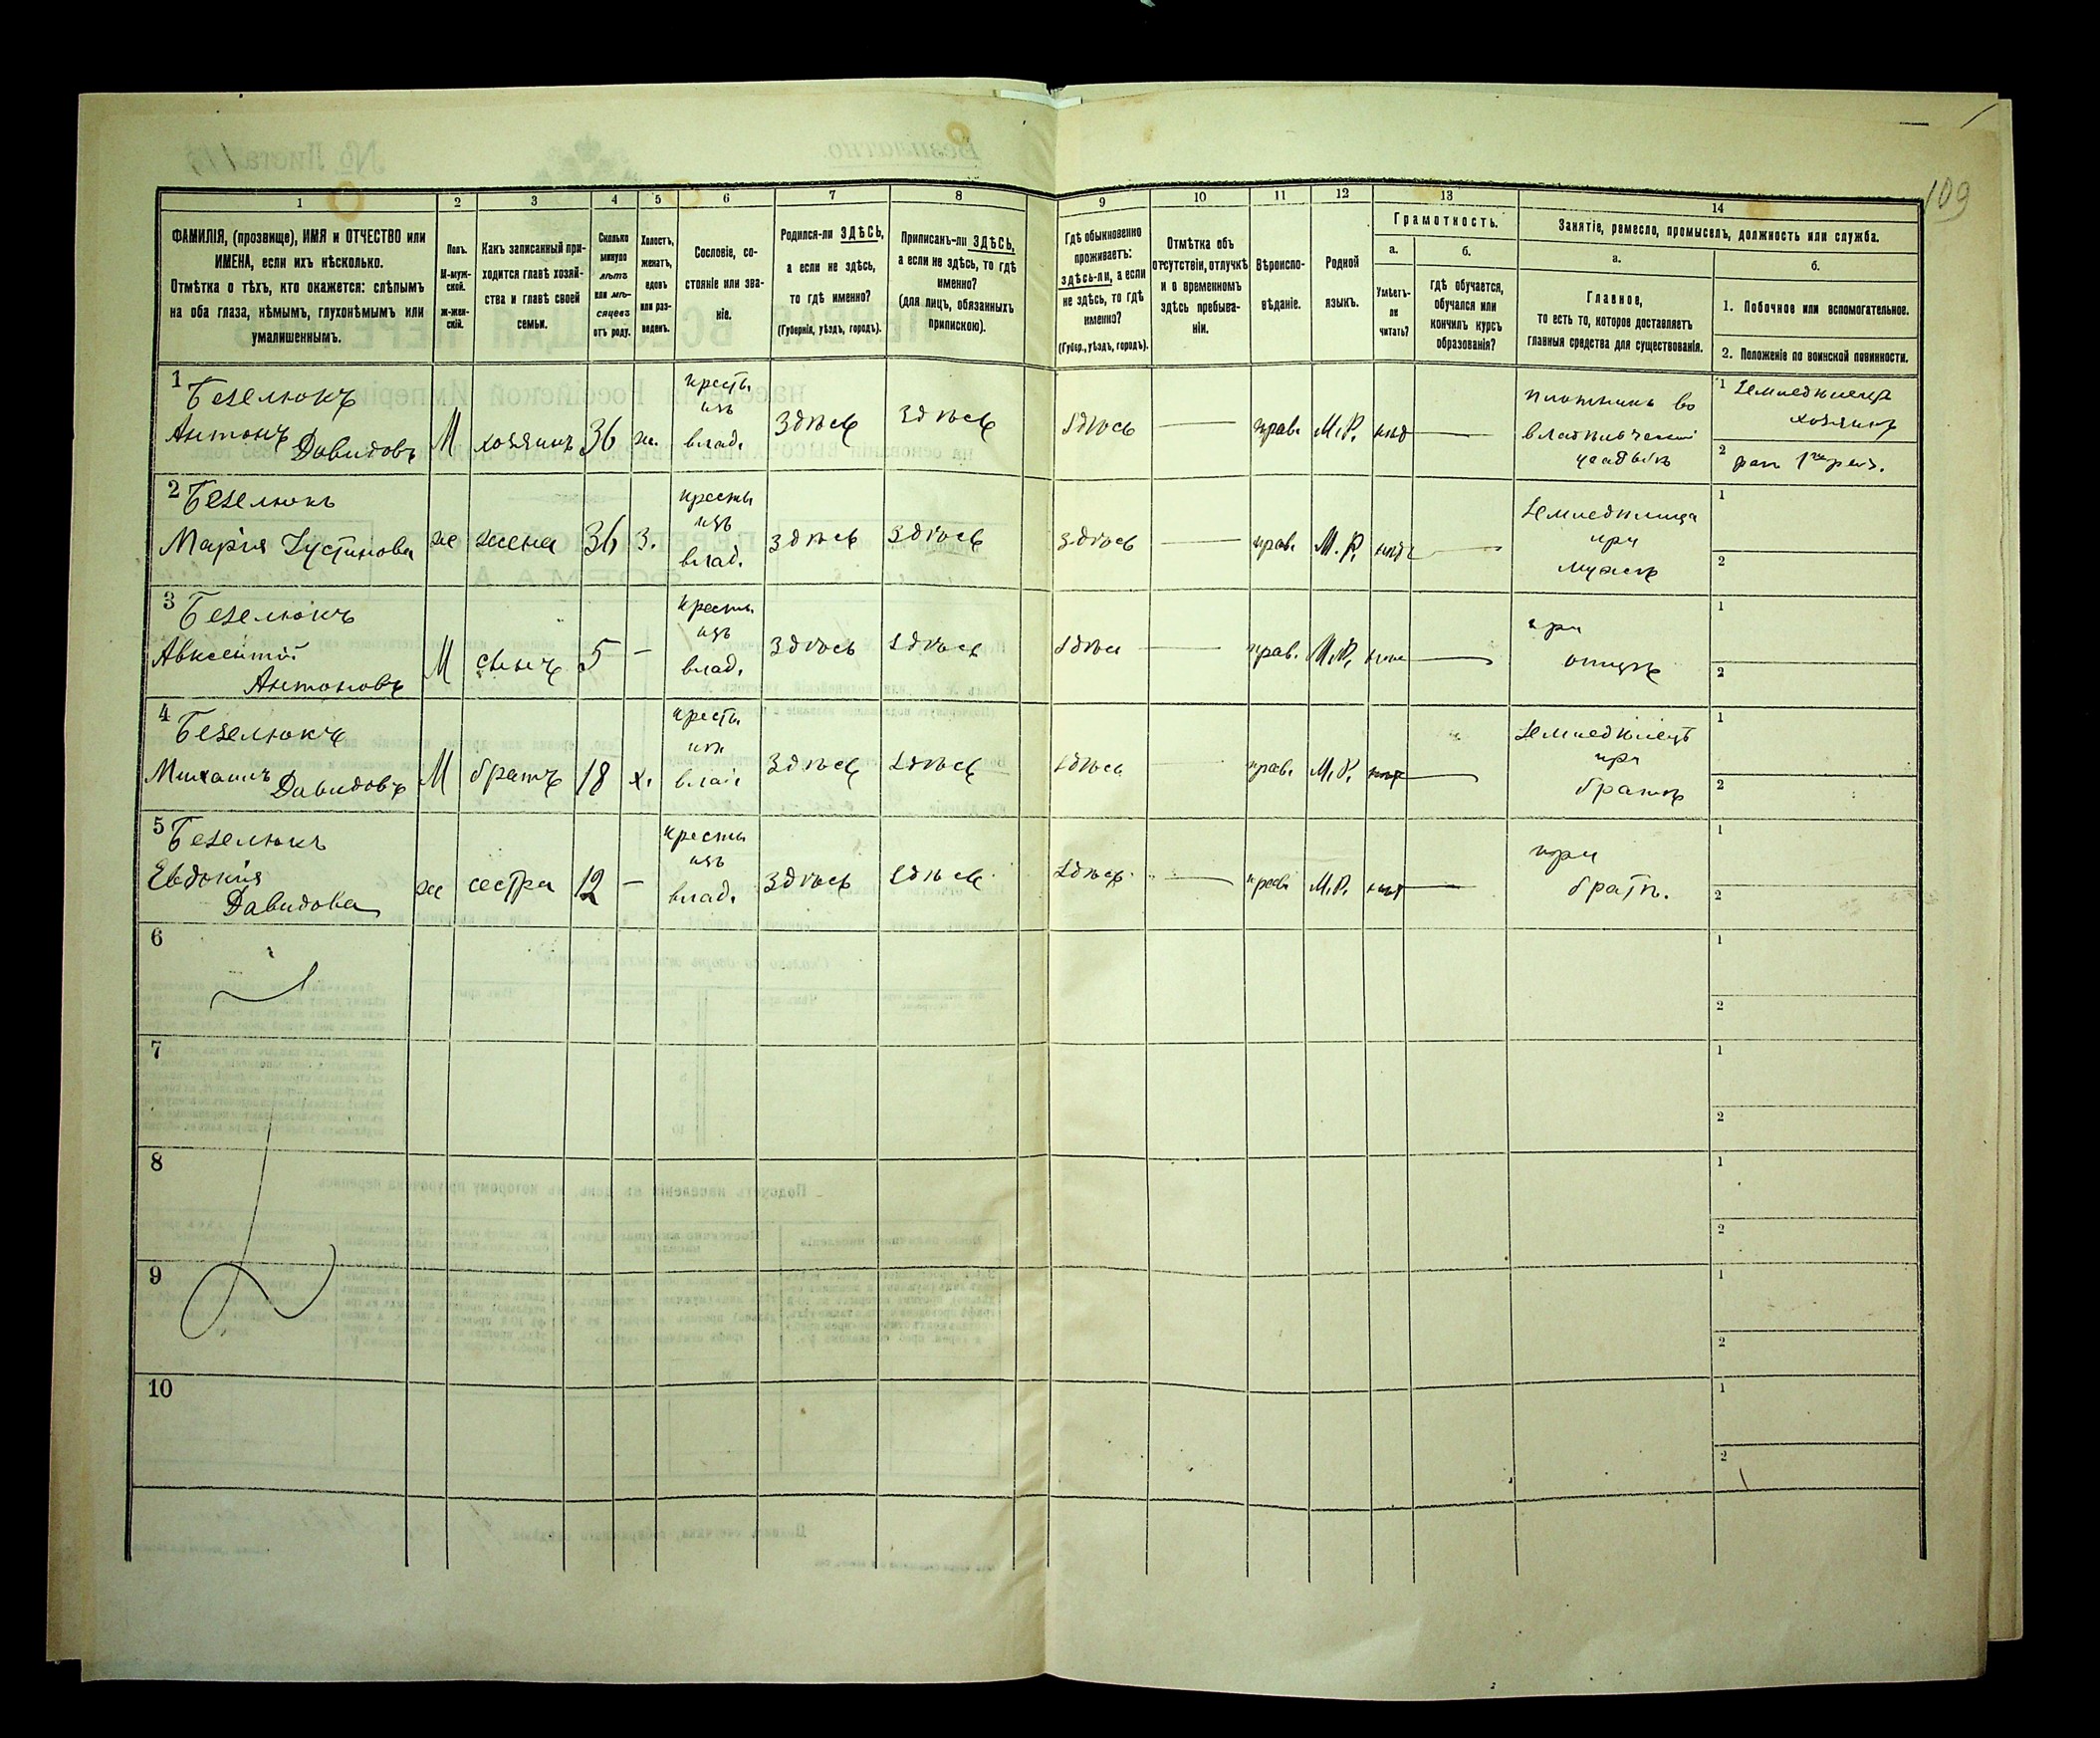 109
1 2 3 4 5 6 7 8 9 10 11 12 13 14
ФАМИЛІЯ, (прозвище), ИМЯ и ОТЧЕСТВО или
ИМЕНА, если ихъ нѣсколько.
Отмѣтка о тѣхъ, кто окажется: слѣпымъ
на оба глаза, нѣмымъ, глухонѣмымъ или
умалишеннымъ.
Полъ.
М-муж-
ской.
ж-жен-
скій.
Какъ записанный при-
ходится главѣ хозяй-
ства и главѣ своей
семьи.
Сколько
минуло
лѣтъ
или мѣ-
сяцевъ
отъ роду.
Холостъ,
женатъ,
вдовъ
или раз-
веденъ.
Сословіе, со-
стояніе или зва-
ніе.
Родился-ли ЗДѢСЬ,
а если не здѣсь,
то гдѣ именно?
(Губернія, уѣздъ, городъ).
Приписанъ-ли ЗДѢСЬ,
а если не здѣсь, то гдѣ
именно?
(для лицъ, обязанныхъ
припискою).
Гдѣ обыкновенно
проживаетъ:
здѣсь-ли, а если
не здѣсь, то гдѣ
именно?
(Губер., уѣздъ, городъ).
Отмѣтка объ
отсутствіи, отлучкѣ
и о временномъ
здѣсь пребыва-
ніи.
Вѣроиспо-
вѣданіе.
Родной
языкъ.
Грамотность.
а.
Умѣетъ-
ли
читать?
б.
гдѣ обучается,
обучался или
кончилъ курсъ
образованія?
Занятіе, ремесло, промыселъ, должность или служба.
а.
Главное,
то есть то, которое доставляетъ
главныя средства для существованія.
б.
1. Побочное или вспомогательное.
2. Положеніе по воинской повинности.
1 Безелюкъ
Антонъ Давидовъ
М хозяинъ 36 ж.
кресть.
изъ
влад.
Здѣсь Здѣсь Здѣсь — прав. М.Р. нѣт —
плотникъ во
усадьбѣ
1 Земледѣлецъ
хозяинъ
2
2 Безелюкъ
Марія Іустинова
ж жена 36 З.
кресть
изъ
влад.
Здѣсь Здѣсь Здѣсь — прав. М.Р. нѣт —
Земледѣлица
при
мужѣ
1
2
3 Безелюкъ
Авксентій
Антоновъ
М сынъ 5 —
кресть
изъ
влад.
Здѣсь Здѣсь Здѣсь — прав. М.Р. нѣт —
при
отцѣ
1
2
4 Безелюкъ
Михаилъ Давидовъ
М братъ 18 х.
кресть.
изъ
влад.
Здѣсь Здѣсь Здѣсь — прав. М.Р. нѣт —
Земледѣлецъ
при
братѣ
1
2
5 Безелюкъ
Евдокія
Давидова
ж сестра 12 —
кресть
изъ
влад.
Здѣсь Здѣсь Здѣсь — прав. М.Р. нѣт —
при
братѣ.
1
2
6
1
2
7
1
2
8
1
2
9
1
2
10
1
2